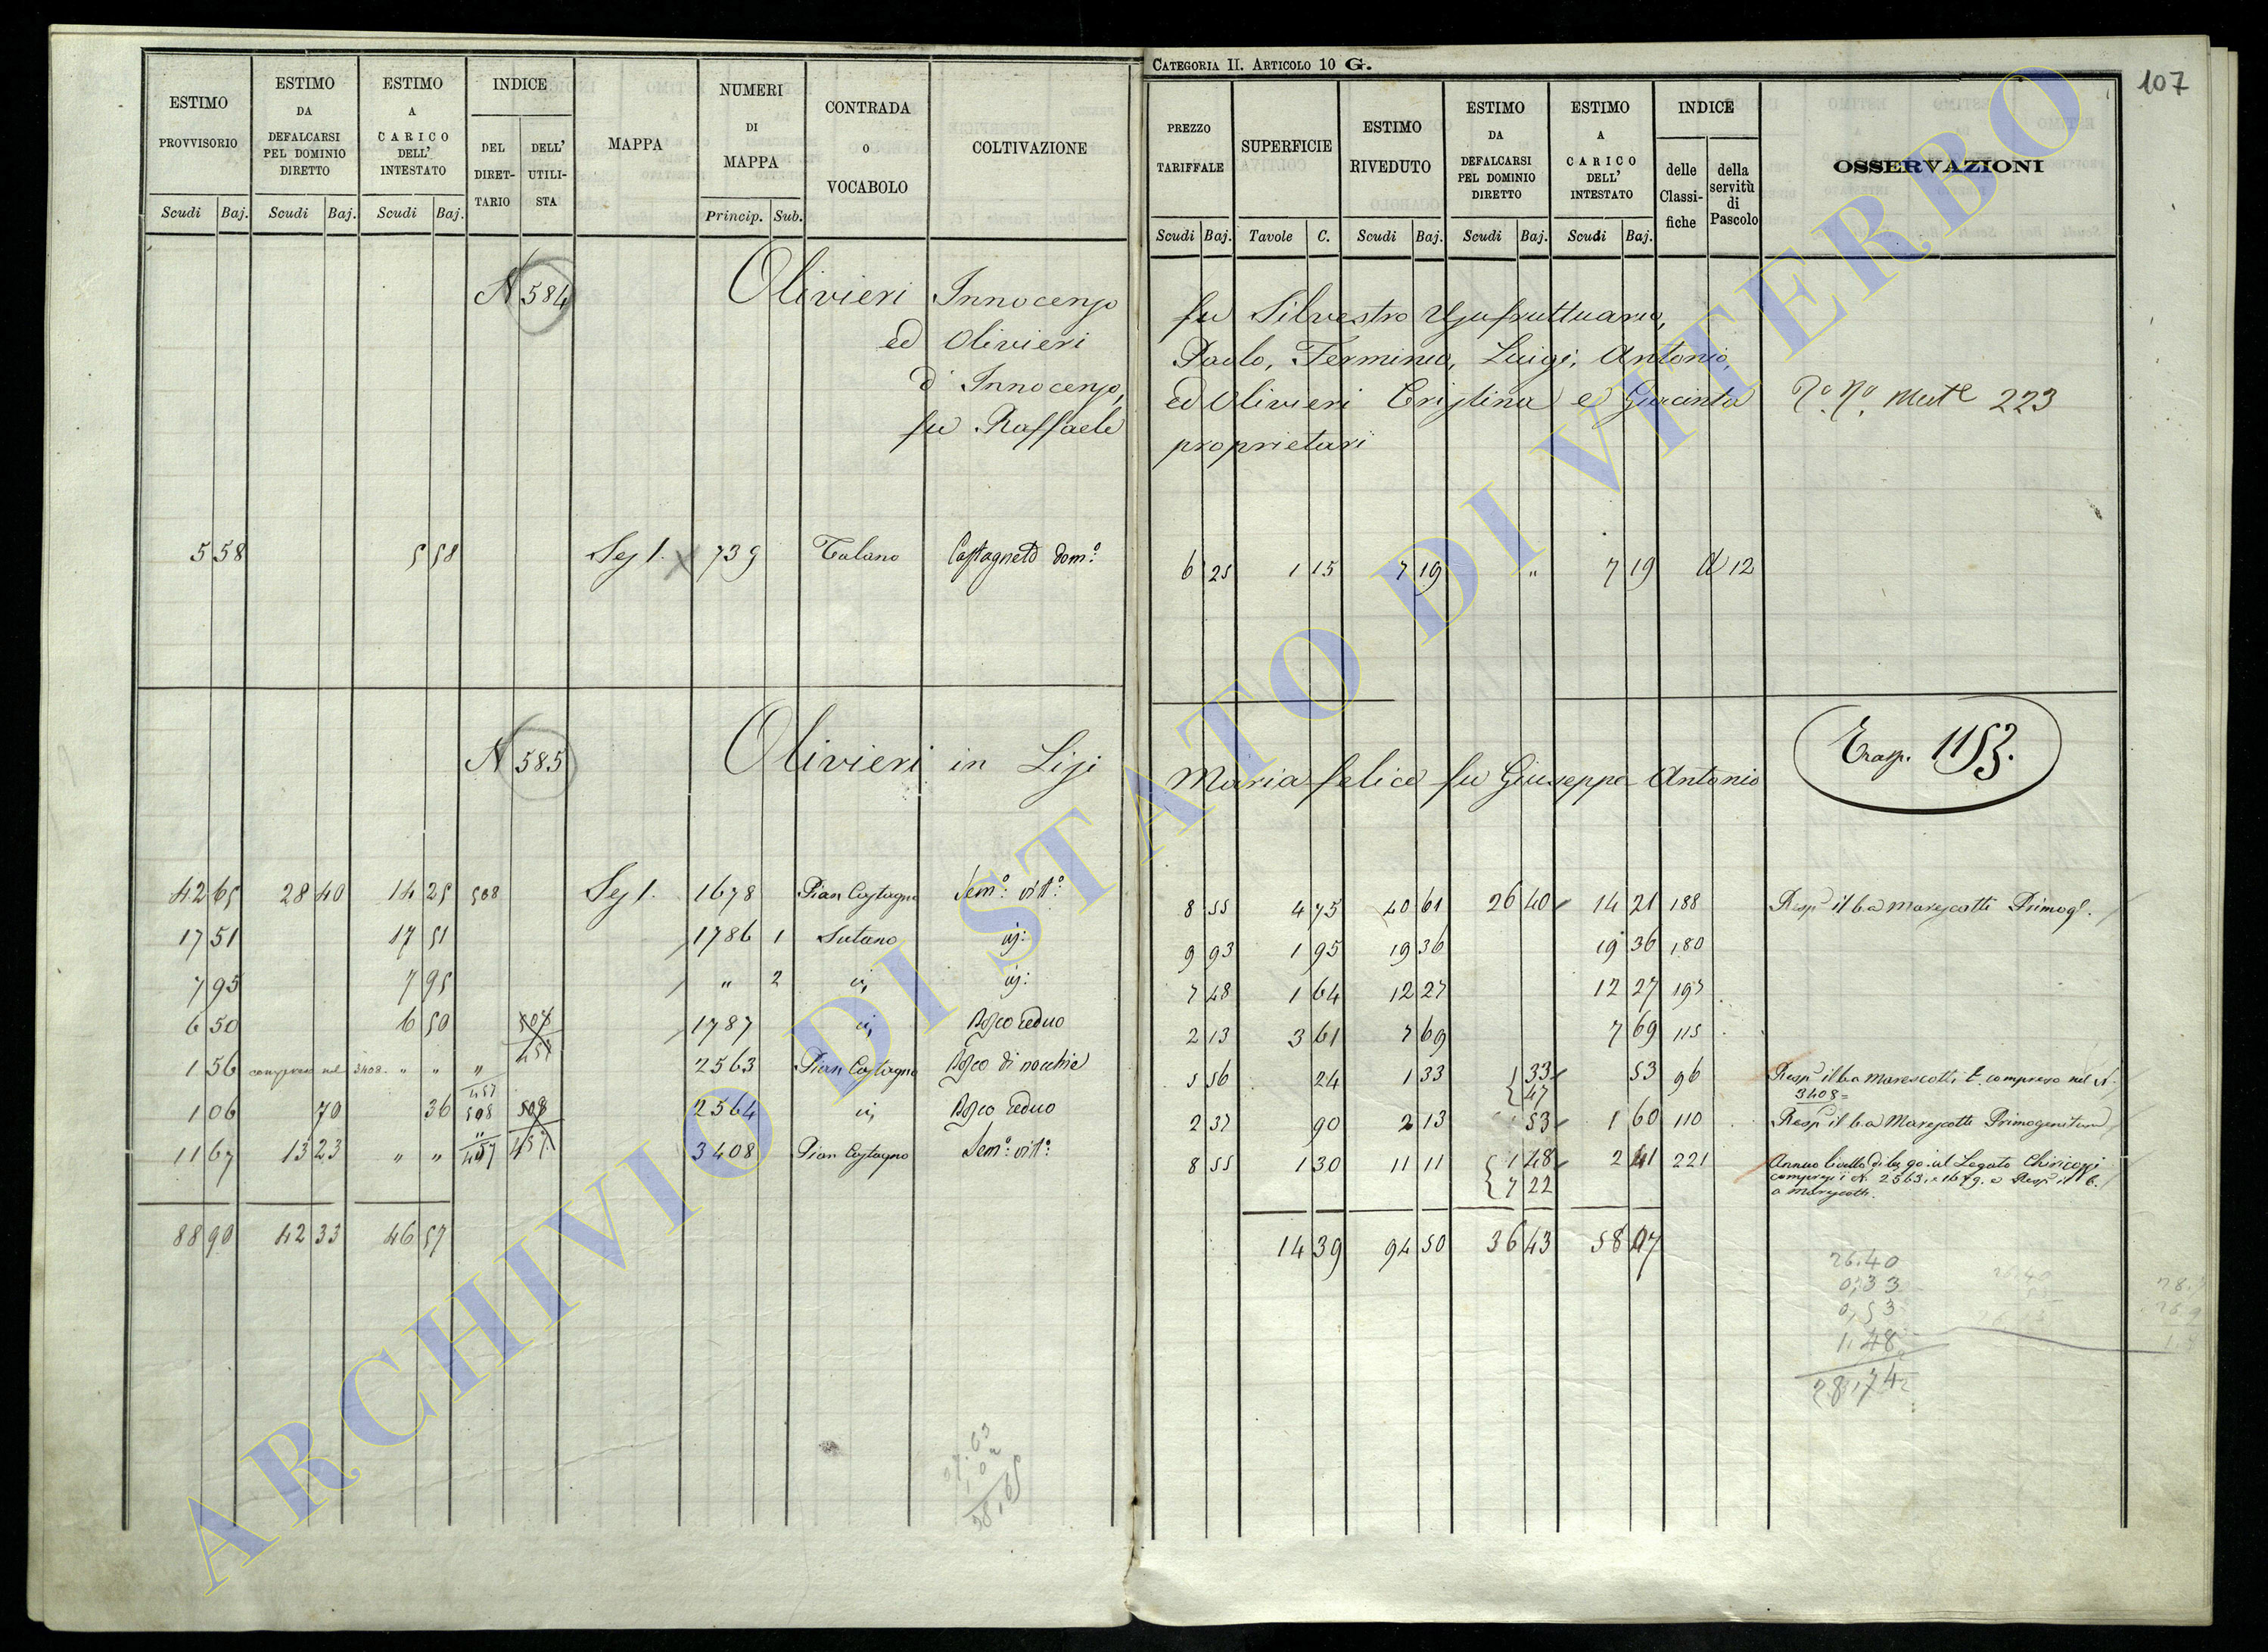 CATEGORIA II. ARTICOLO 10 G.
107
ESTIMO PROVVISORIO
ESTIMO DA DEFALCARSI PEL DOMINIO DIRETTO
ESTIMO A CARICO DELL' INTESTATO
INDICE
DEL DIRETTARIO
DELL' UTILISTA
MAPPA
NUMERI DI MAPPA
CONTRADA O VOCABOLO
COLTIVAZIONE
Scudi Baj. Scudi Baj. Scudi Baj. Princip. Sub.
PREZZO TARIFFALE
SUPERFICIE
ESTIMO RIVEDUTO
ESTIMO DA DEFALCARSI PEL DOMINIO DIRETTO
ESTIMO A CARICO DELL' INTESTATO
INDICE
delle Classifiche
della servitù di Pascolo
OSSERVAZIONI
Scudi Baj. Tavole C. Scudi Baj. Scudi Baj. Scudi Baj.
N 584 Olivieri Innocenzo fu Silvestro Usufruttuario,
ed Olivieri Paolo, Terminio, Luigi, Antonio,
d' Innocenzo, ed Olivieri Cristina e Giacinta
fu Raffaele proprietari
Mut 223
5 58 5 58 Sez 1. 739 Talano Castagneto dom:º 6 25 1 15 7 19 " 7 19 12
N 585 Olivieri in Lisi Maria felice fu Giuseppe Antonio
Trasp. 1153.
42 65 28 40 14 25 508 Sez 1. 1678 Pian Castagno Sem:º vit:º 8 55 4 75 40 61 26 40 14 21 188 Resp il 6.a Marescotti Primog.
17 51 17 51 1786 1 Sutano id: 9 93 1 95 19 36 19 36 180
7 95 7 95 " 2 id: 7 48 1 64 12 27 12 27 197
6 50 6 50 508 457 1787 Bosco ceduo 2 13 3 61 7 69 7 69 115
1 56 compreso nel 3408. " " " 2563 Pian Castagno Bosco di nocchie 5 56 24 1 33 33 47 53 96 Resp il 6.a Marescotti E compreso nel N. 3408=
1 06 70 36 457 508 508 2564 Bosco ceduo 2 37 90 2 13 53 1 60 110 Resp il 6.a Marescotti Primogenitura
11 67 13 23 " " " 457 457 3408 Pian Castagno Sem:º vit:º 8 55 1 30 11 11 1 48 7 22 2 41 221 Annuo livello di al Legato Chiricozzi
compresi i N. 2563, e 1679. e Resp il 6.
a Marescotti.
88 90 42 33 46 57 14 39 94 50 36 43 58 07
26.40
0,33
0,53
1,48
28,74
ARCHIVIO DI STATO DI VITERBO